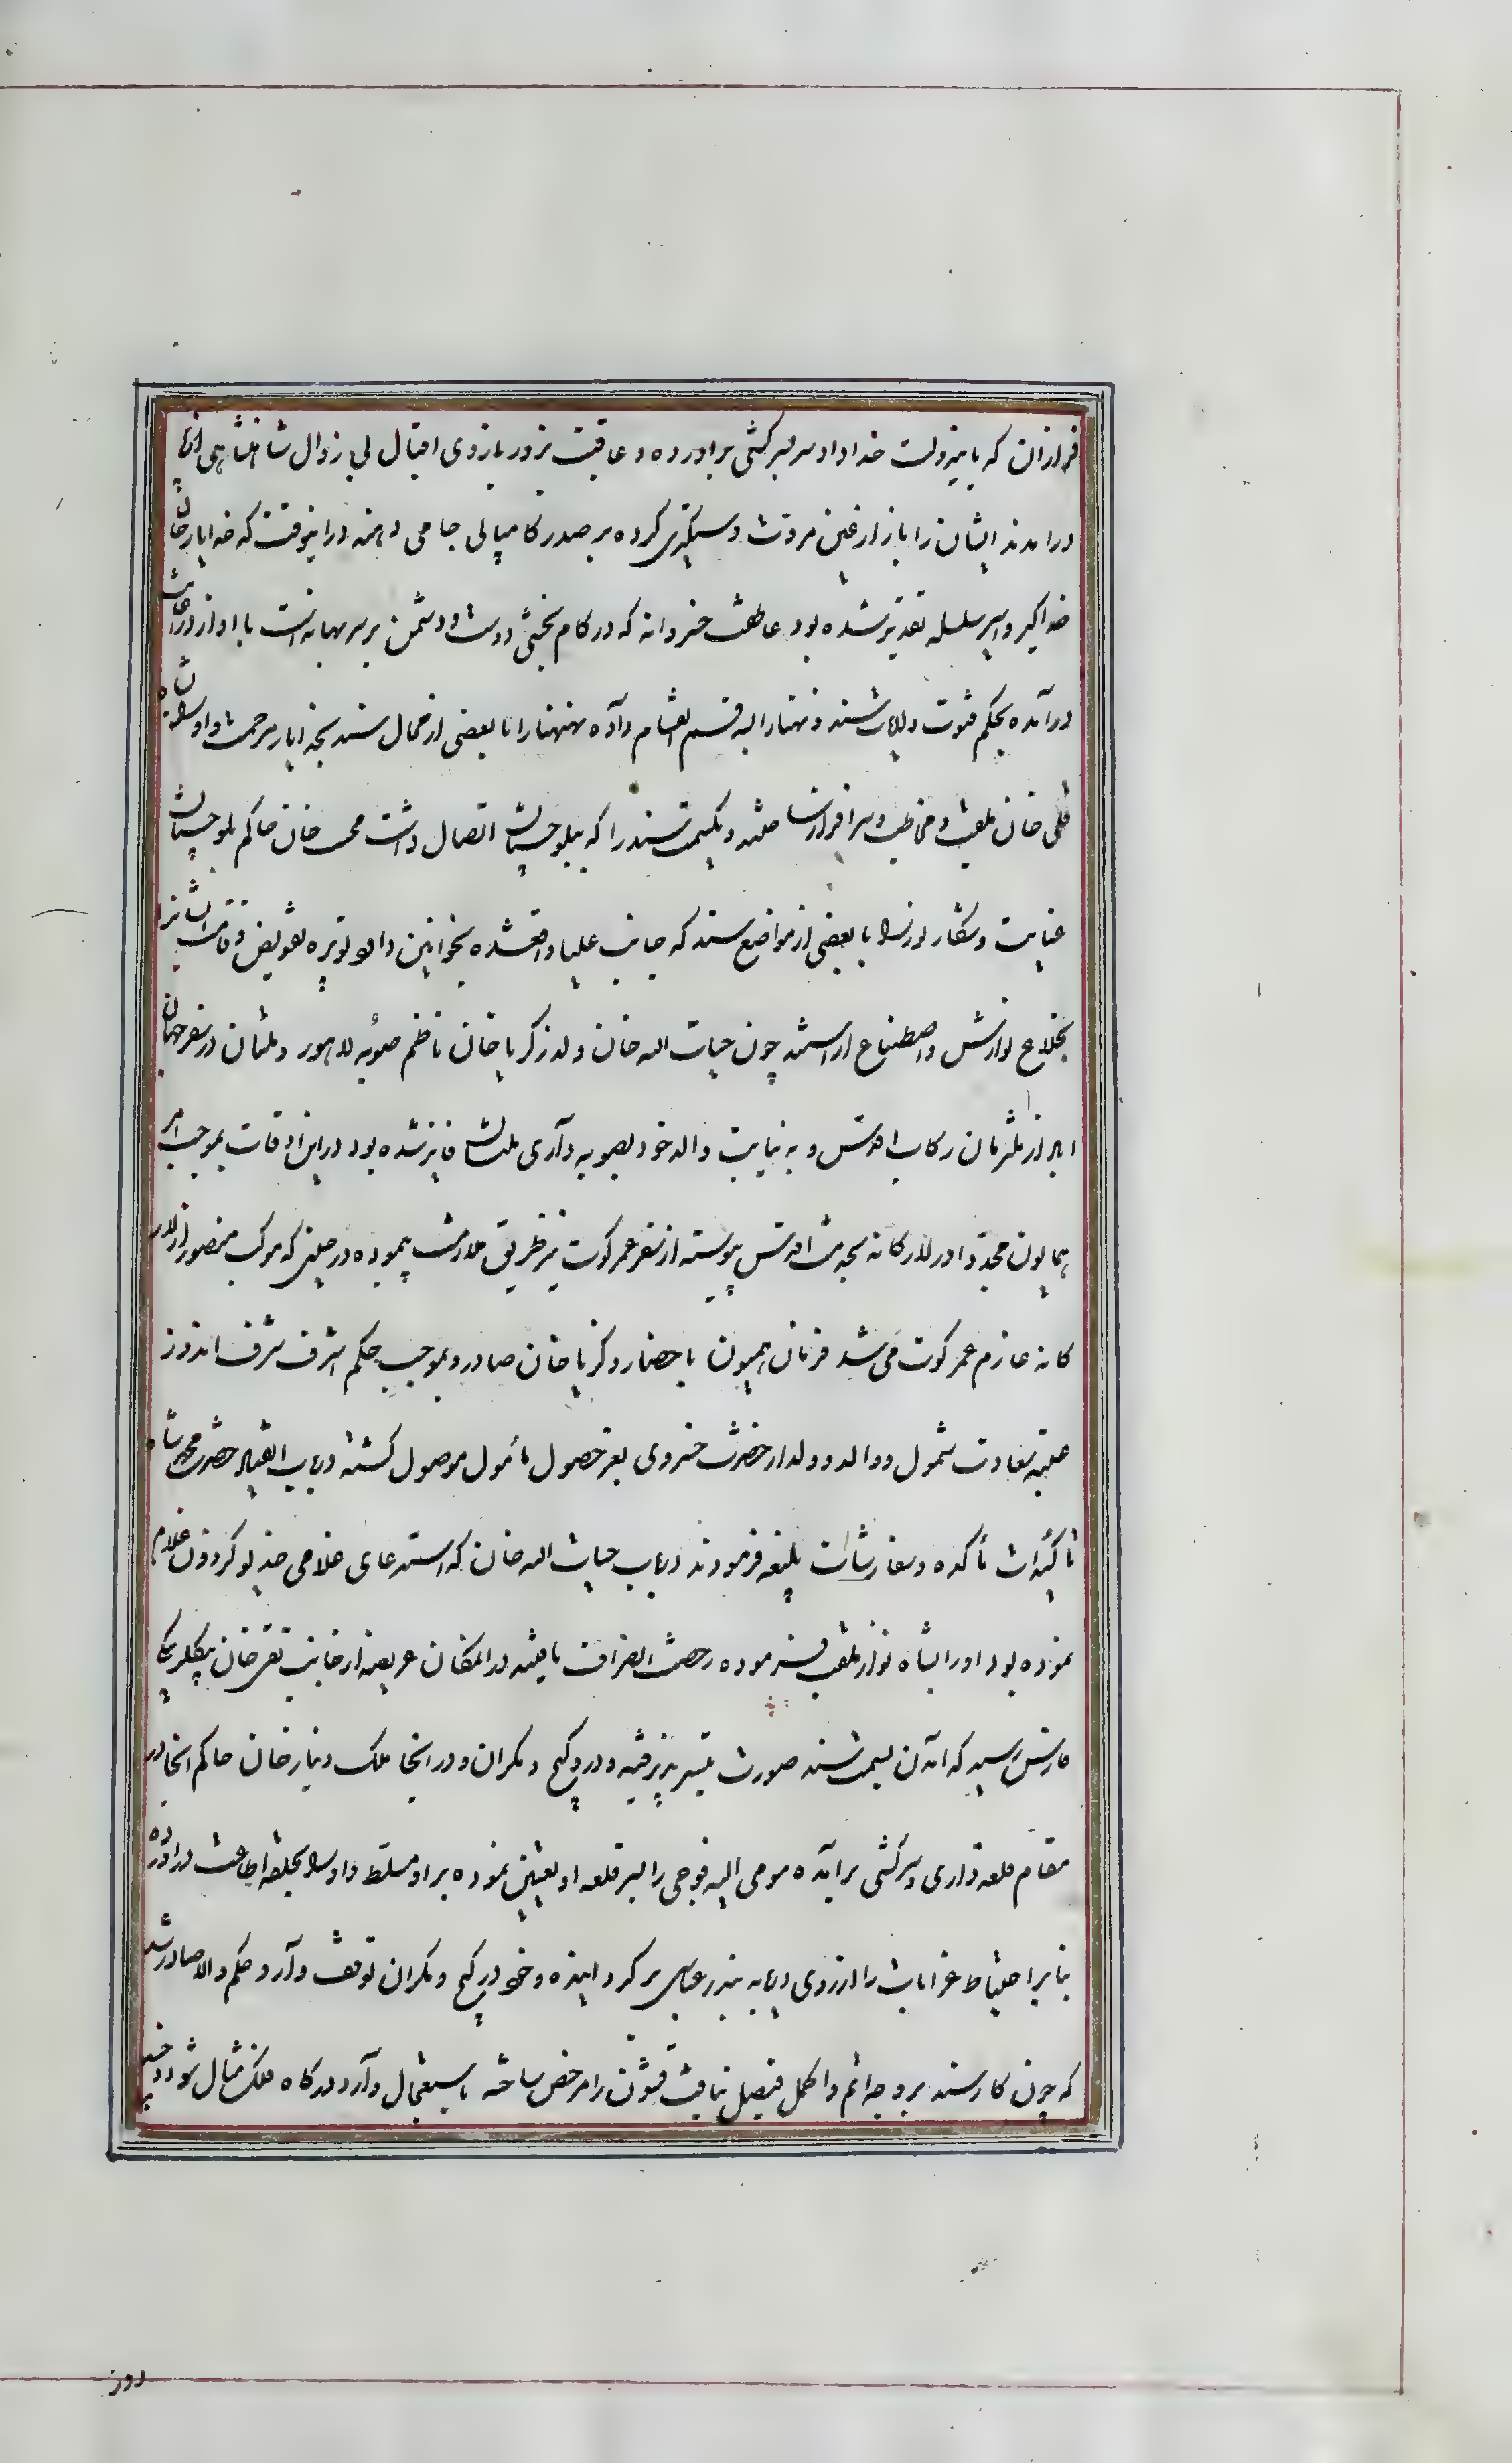 فرازان که با این دولت خداداد سر بسرکشی برآورده و عاقبت بزور بازوی اقبال بی زوال شاهنشاهی از پا
درامدند ایشان را باز از عین مروت دستگیری کرده بر صدر کامیابی جا می دهند درینوقت که خدایار خان
خود اکبر و اسیر سلسله تقدیر شده بود عاطفت خسروانه که در کام بخشی دوست و دشمن بر سر بهانه است با او از در
درآمده بحکم فتوت ولایت سند و تهته را سه قسم انقسام داده تهته را با بعضی از محال سند بخدایار مرحمت و او را بشاه
قلی خان ملقب و مخاطب و سرافراز ساخته و یکسمت سند را که ببلوچستان اتصال داشت محبت خان حاکم بلوچستان
عنایت و شکارپور را با بعضی از مواضع سند که جانب علیا واقعشده بخوانین داود پوتره تفویض و قامت ایشانرا
بخلاع نوازش و اصطناع اراستند چون حیات الله خان ولد زکریا خان ناظم صوبه لاهور و ملتان در سفر جهان
ابد از ملتزمان رکاب اقدس و به نیابت والد خود بصوبه داری ملتان فایز شده بود در این اوقات بموجب امر
همایون مجددا در لارکانه بخدمت اقدس پیوسته از سفر عمرکوت نیز طریق ملازمت پیموده در حینی که موکب منصور از لار
کانه عازم عمرکوت می شد فرمان همیون باحضار زکریا خان صادر و بموجب حکم اشرف شرف اندوز
عتبه سعادت شمول و والد و ولد از حضرت خسروی بعز حصول مأمول موصول گشته درباب انقیاد حضرت محمد شاه
تأکیدات مأکده و سفارشات بلیغه فرمودند درباب حیات الله خان که استدعای غلامی خدیو گردون غلام
نموده بود او را بشاه نواز ملقب فرموده رخصت انصراف یافتند در المکان عریضه از جانب تقی خان بیگلربیگی
فارس رسید که آمدن بسمت سند صورت تیسر پذیرفته و در کیج و مکران و در انجا ملک دینار خان حاکم انجا در
مقام قلعه داری و سرکشی برآمده مومی الیه فوجی را بسر قلعه او تعیین نموده بر او مسلط و او را بحلقه اطاعت دراورده
بنا بر احتیاط غرابات را از روی دریا به بندر عباسی برگردانیده و خود در کیج و مکران توقف دارد حکم والا صادر شد
که چون کار سند بر وجه اتم و اکمل فیصل یافت قشون را مرخص ساخته باستعجال وارد درگاه فلک مثال شود و
روز